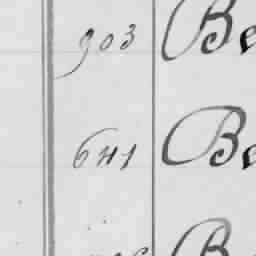 903 Be
641 Be
B